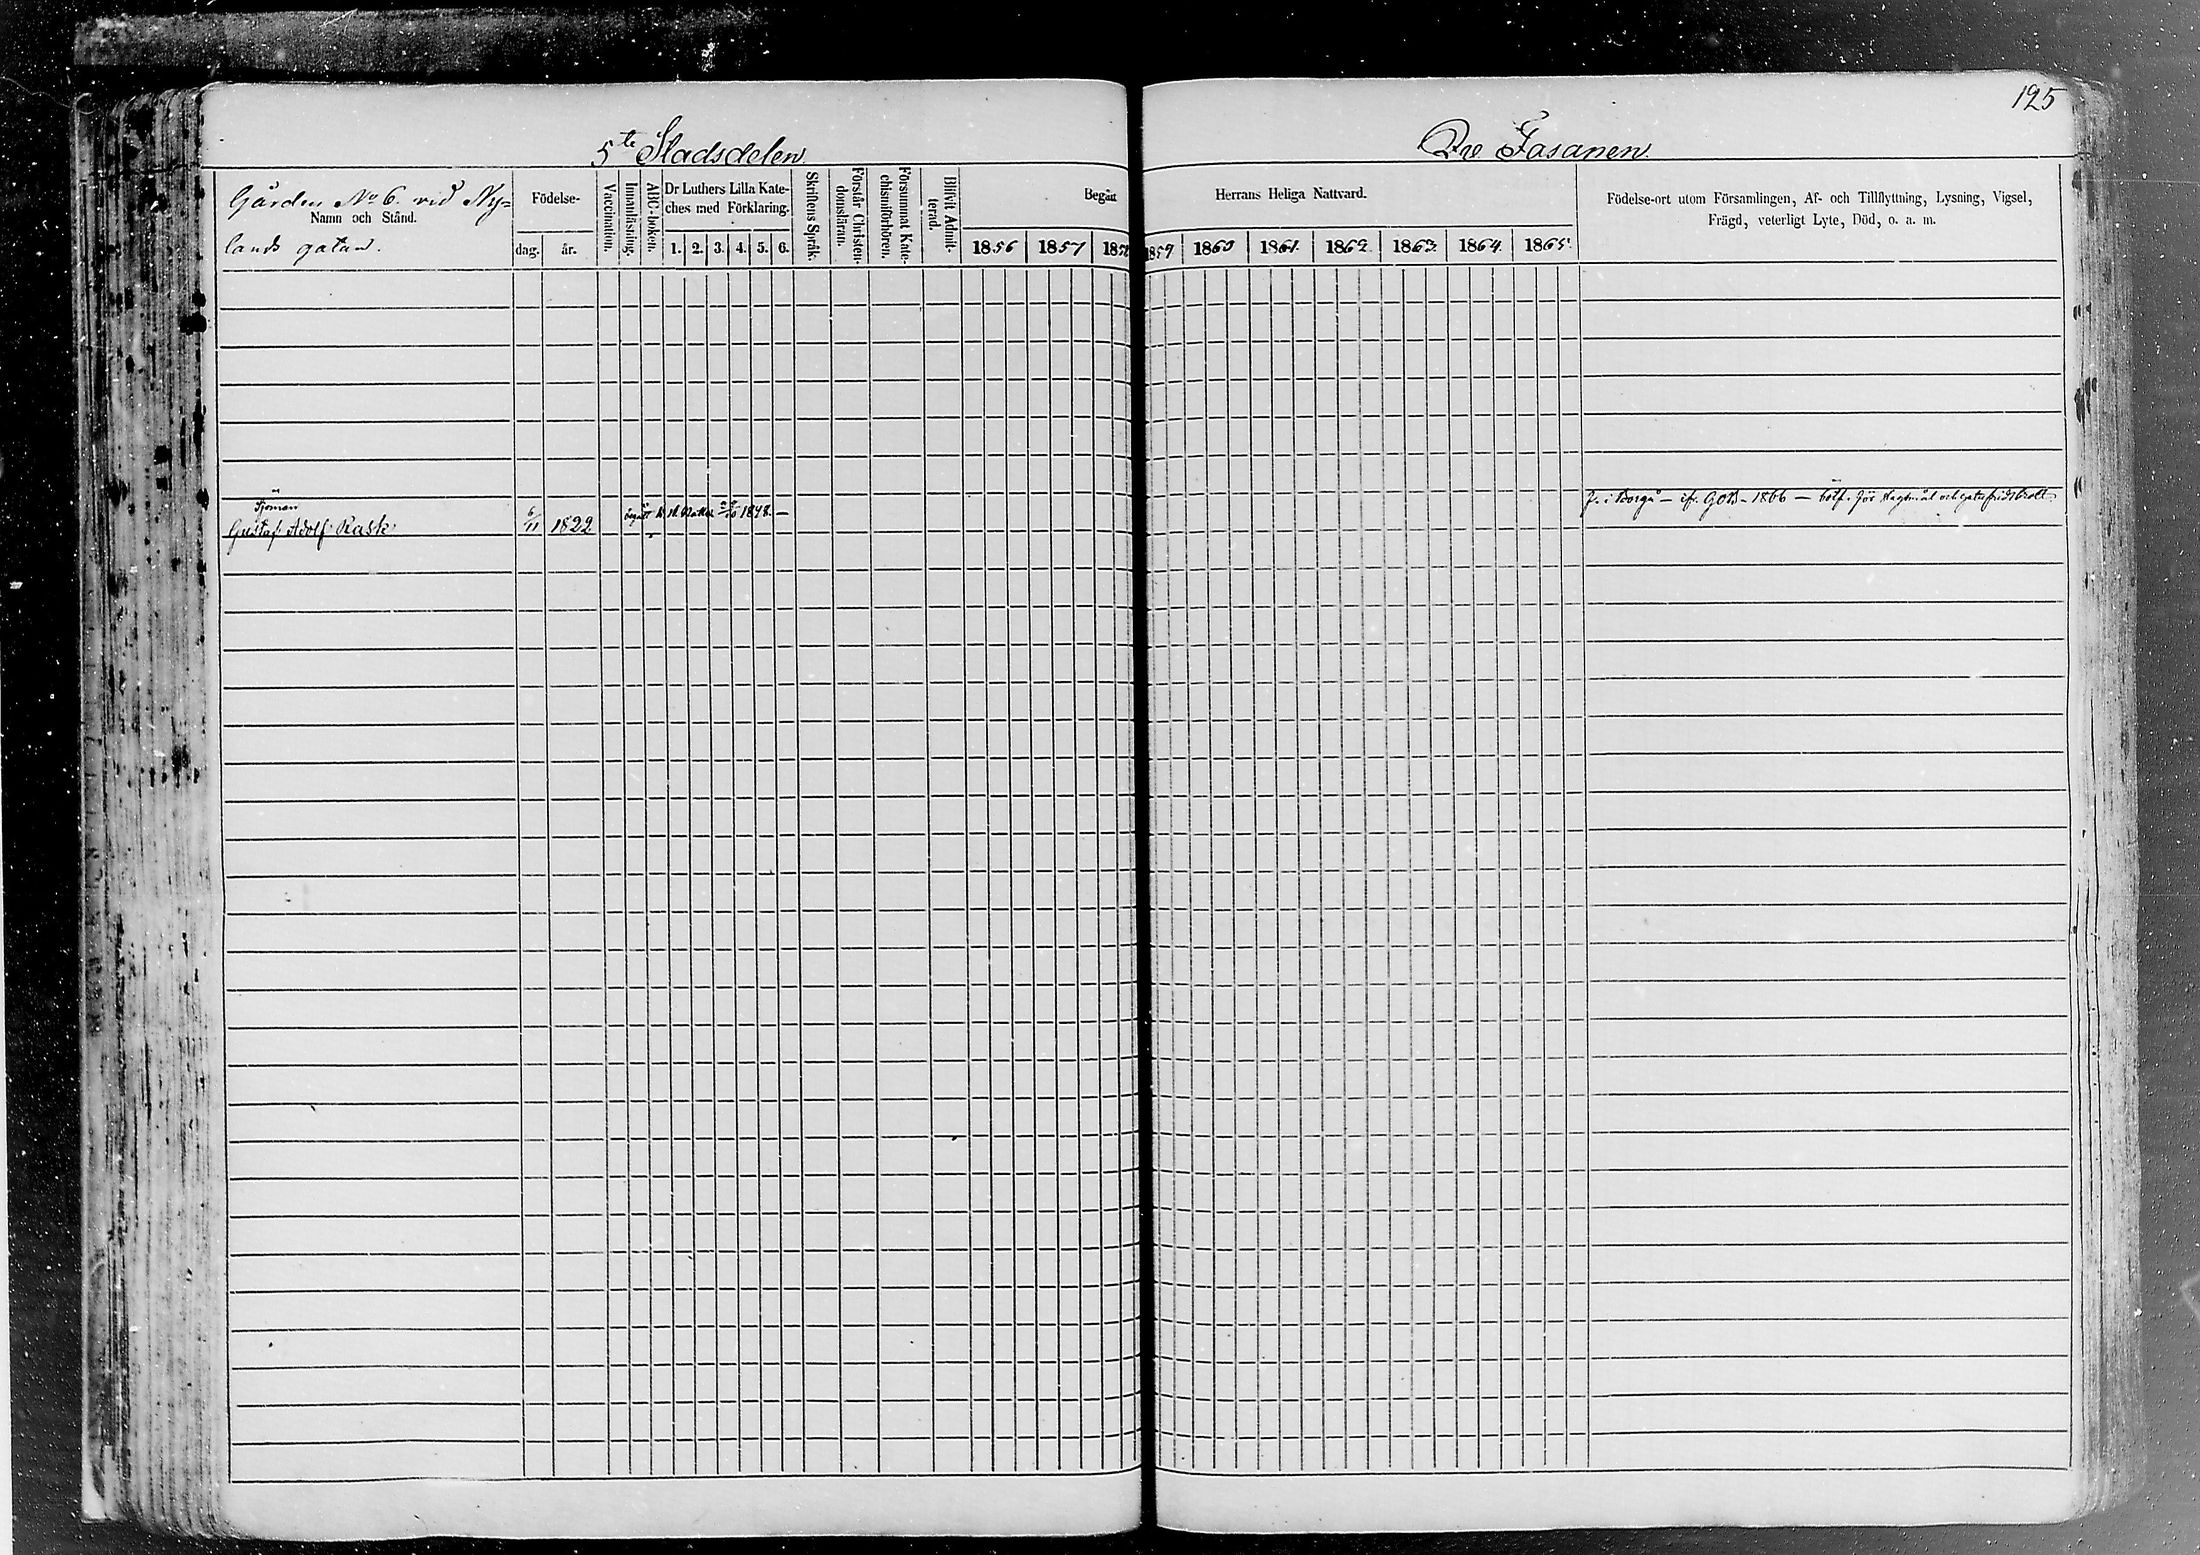 125
5te Stadsdelen.
Qv. Fasanen.
Gården No 6. vid Ny=
Namn och Stånd.
lands gatan.
Födelse-
dag.
år.
Vaccination.
Innanläsning.
ABC-boken.
Dr Luthers Lilla Kate-
ches med Förklaring.
1. 2. 3. 4. 5. 6.
Skriftens Språk.
Förstår Christen-
domsläran.
Försummat Kate-
chismiförhören.
Blifvit Admit-
terad.
Begått Herrans Heliga Nattvard.
1856 1857 1858 1859 1860 1861. 1862. 1863. 1864. 1865.
Födelse-ort utom Församlingen, Af- och Tillflyttning, Lysning, Vigsel,
Frägd, veterligt Lyte, Död, o. a. m.
Sjöman
Gustaf Adolf Rask
6/11 1822
begått 1848. —
f. i Borgå — GOB — 1866 — bötf. för slagsmål och gatufridsbrott.